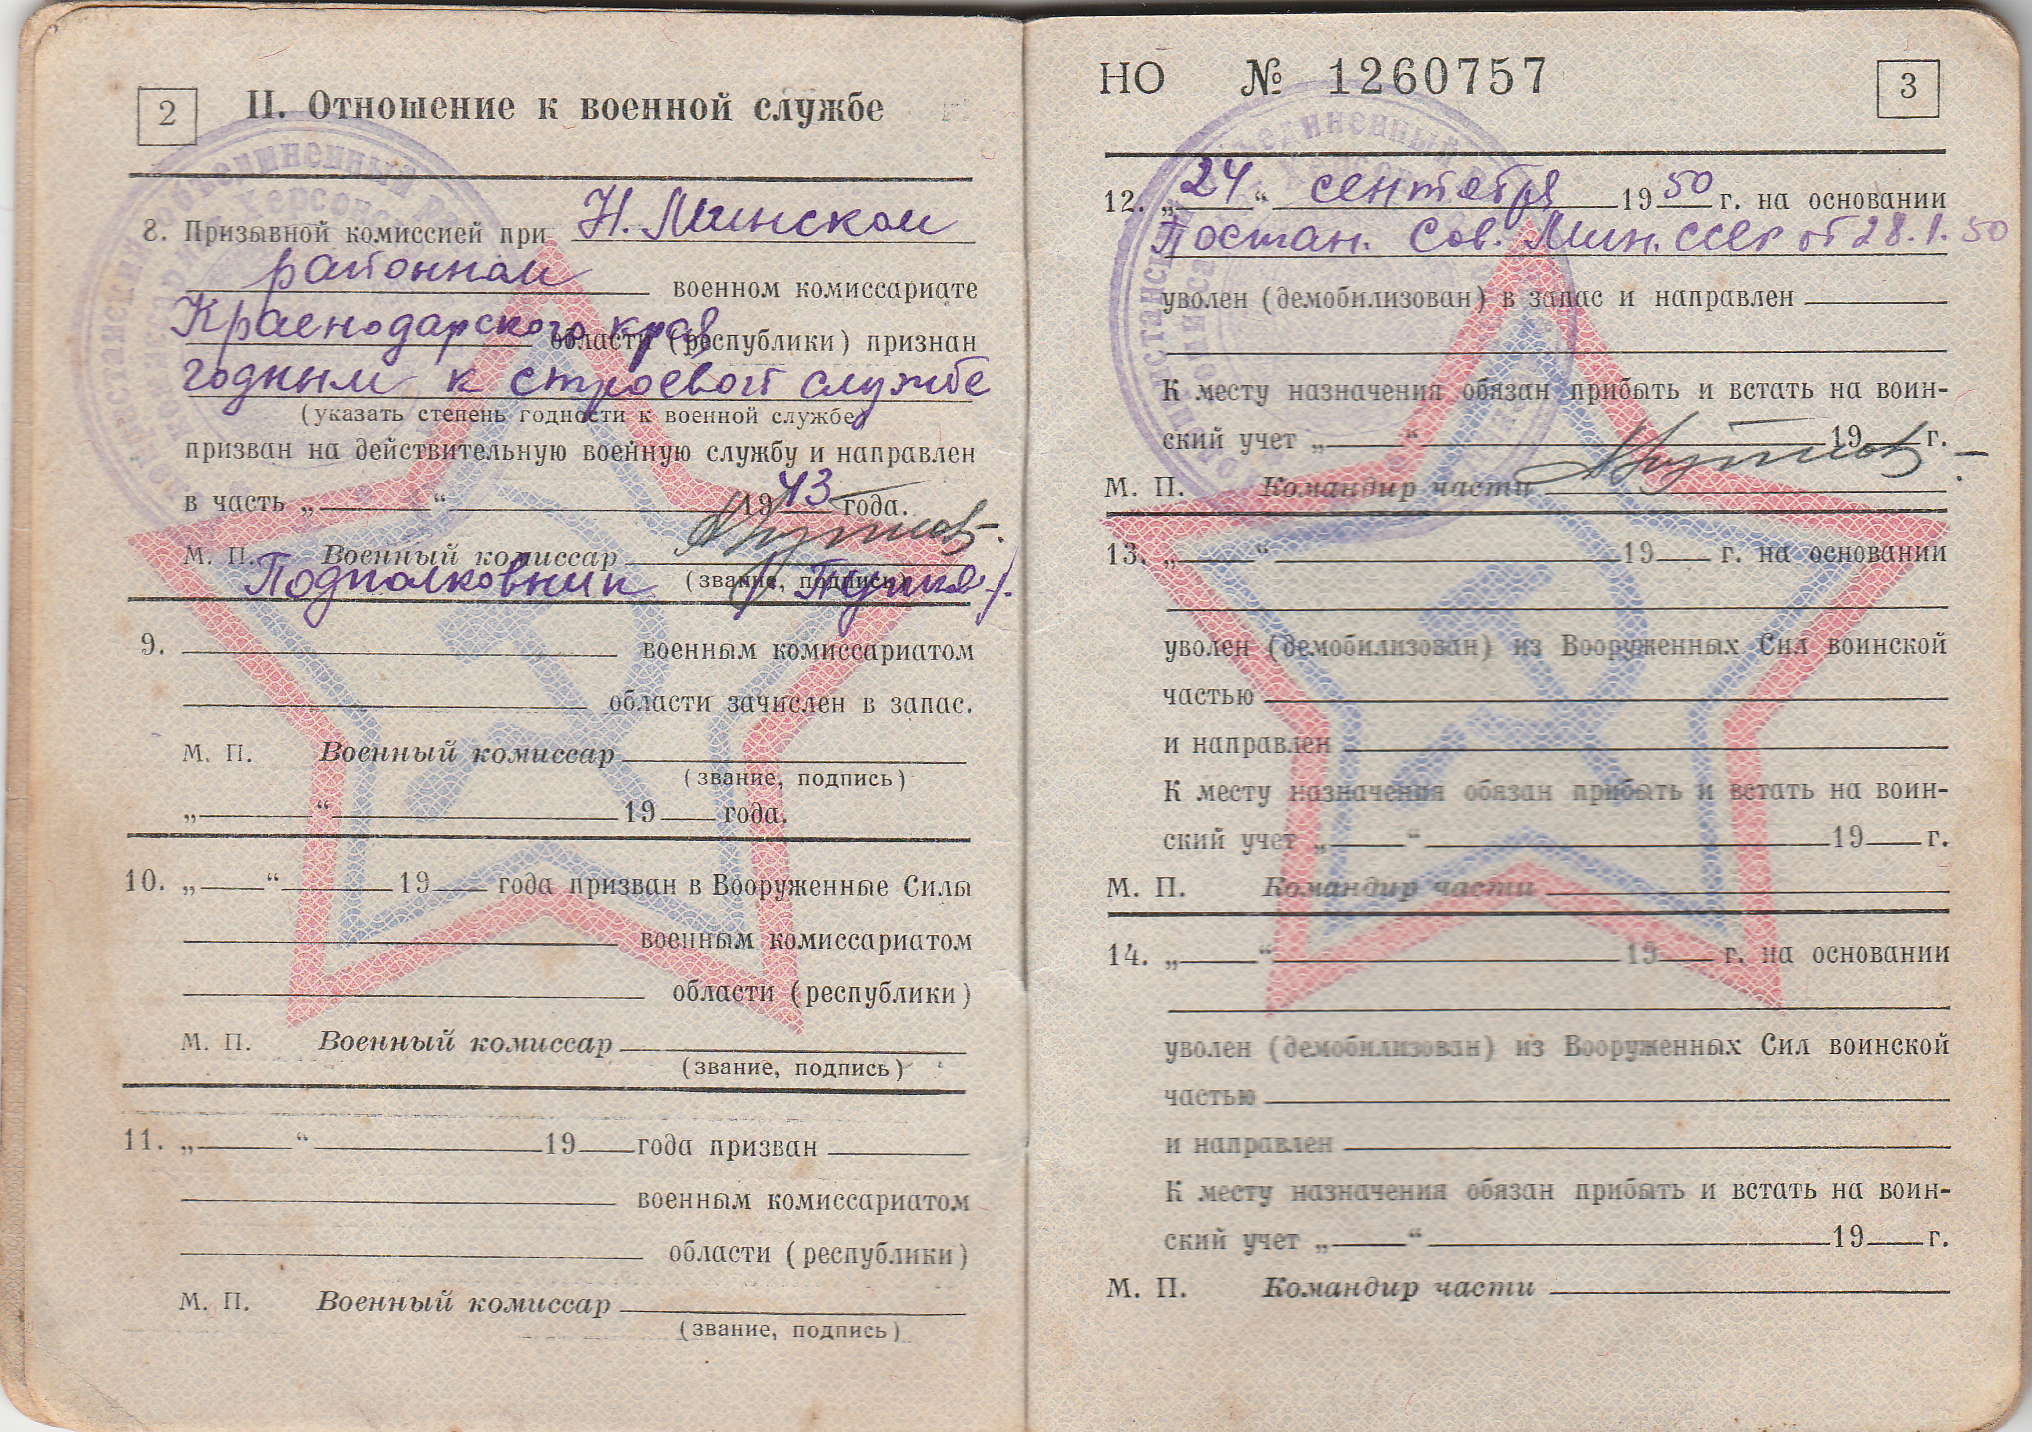 2
II. Отношение к военной службе
8. Призывной комиссией при Н. Минском
районном военном комиссариате
Краснодарского края области (республики) признан
годным к строевой службе
(указать степень годности к военной службе)
призван на действительную военную службу и направлен
в часть „ “ 1943 года.
М. П. Военный комиссар
Подполковник (звание, подпись)
9. военным комиссариатом
области зачислен в запас.
М. П. Военный комиссар
(звание, подпись)
„ “ 19 года.
10. „ “ 19 года призван в Вооруженные Силы
военным комиссариатом
области (республики)
М. П. Военный комиссар
(звание, подпись)
11. „ “ 19 года призван
военным комиссариатом
области (республики)
М. П. Военный комиссар
(звание, подпись)
НО № 1260757
3
12. „24“ сентября 1950 г. на основании
Постан. Сов. Мин. СССР от 28.1.50
уволен (демобилизован) в запас и направлен
К месту назначения обязан прибыть и встать на воин-
ский учет „ “ 19 г.
М. П. Командир части
13. „ “ 19 г. на основании
уволен (демобилизован) из Вооруженных Сил воинской
частью
и направлен
К месту назначения обязан прибыть и встать на воин-
ский учет „ “ 19 г.
М. П. Командир части
14. „ “ 19 г. на основании
уволен (демобилизован) из Вооруженных Сил воинской
частью
и направлен
К месту назначения обязан прибыть и встать на воин-
ский учет „ “ 19 г.
М. П. Командир части